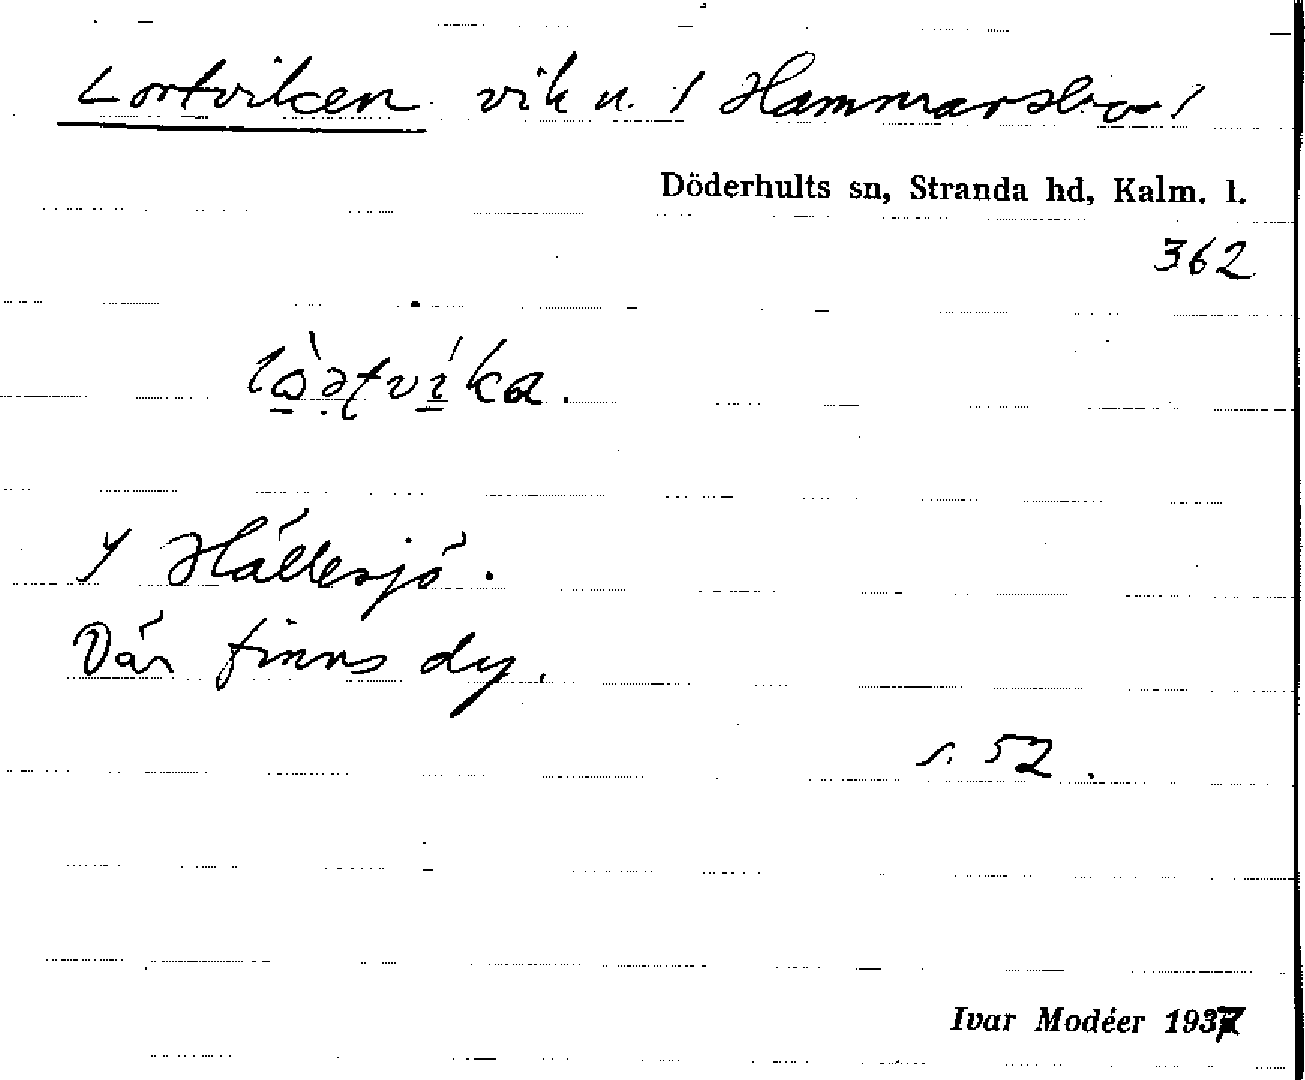 Lortviken vik n. / Hammarsebo /
Döderhults sn, Stranda hd, Kalm. l.
362
I Hällesjö.
Där finns dy.
s. 52.
Ivar Modéer 1937